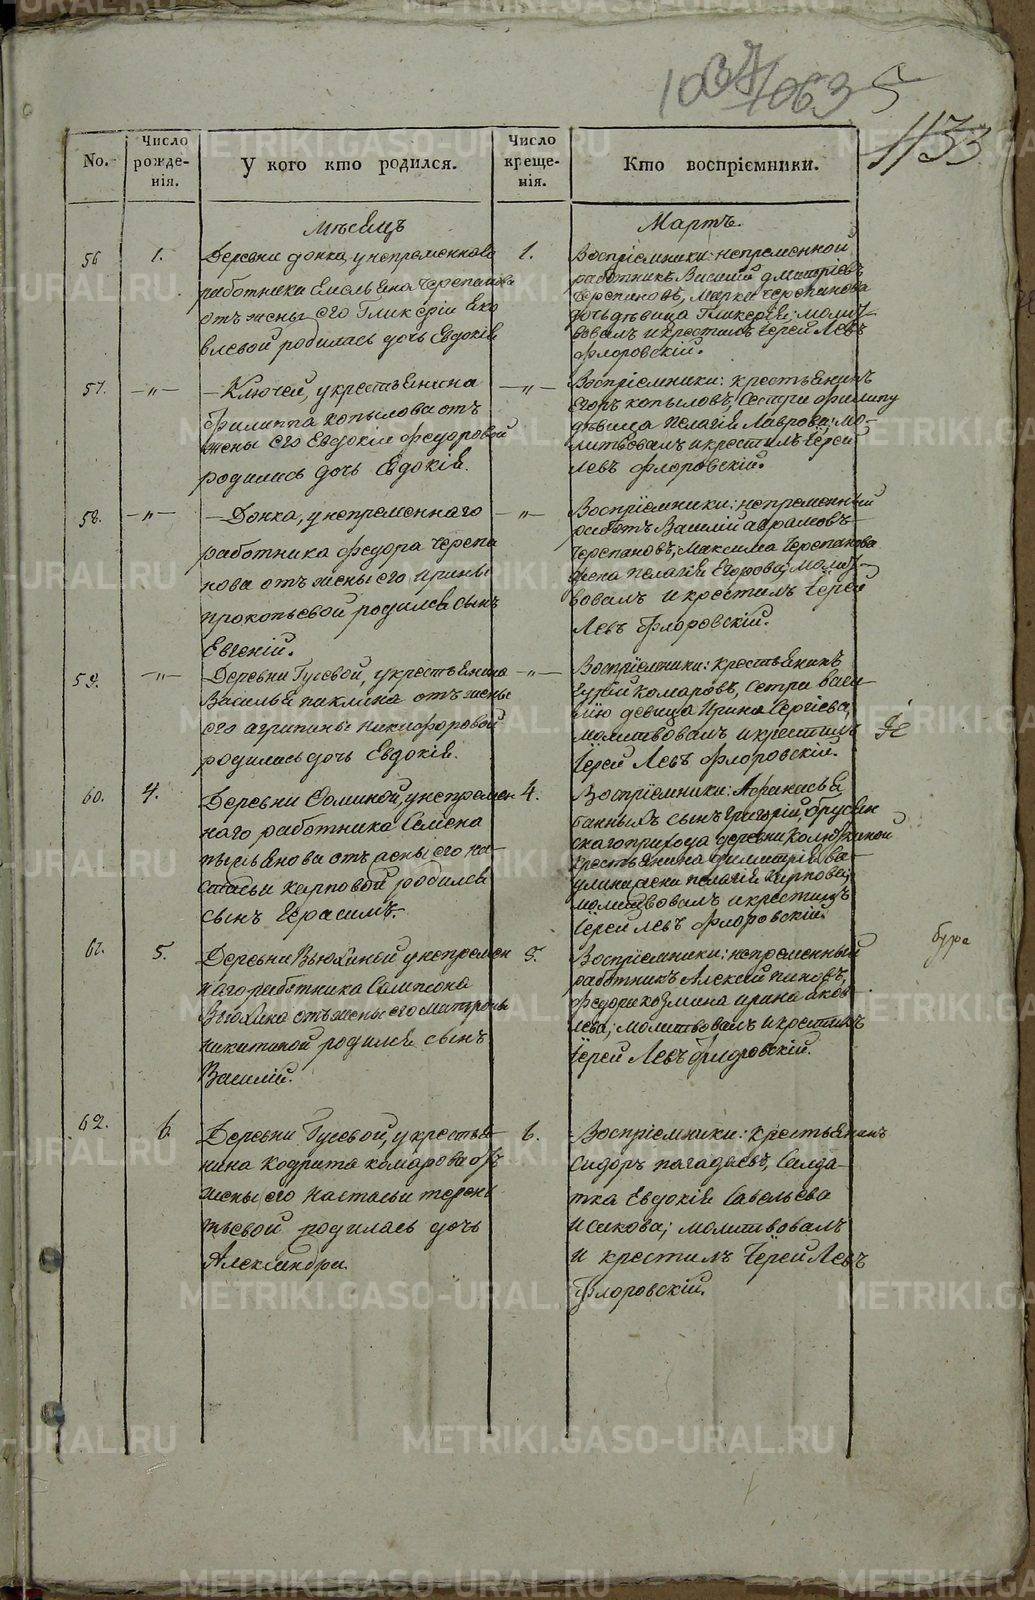 1133
No.
Число рожденія.
У кого кто родился.
Число крещенія.
Кто воспріемники.
Мѣсяцъ
Мартъ.
56
1.
Деревни Донка, у непременнаго
работника Емельяна Черепанова
отъ жены его Гликеріи Яко
влевой родилась дочь Евдокія
1.
Воспріемники: непременной
работникъ Василій Дмитріевъ
Черепановъ, Марка Черепанова
дочь девица Гликерія; молит
вовалъ и крестилъ Іерей Левъ
Флоровскій.
57.
—„—
— Ключей, у крестьянина
Филиппа Копылова отъ
жены его Евдокіи Федоровой
родилась дочь Евдокія.
—„—
Воспріемники: крестьянинъ
Егоръ Копыловъ, сестра Филиппу
девица Пелагія Лаврова; мо-
литвовалъ и крестилъ Іерей
Левъ Флоровскій.
58.
—„—
— Донка, у непременнаго
работника Федора Черепа
нова отъ жены его Ирины
Прокопьевой родился сынъ
Евгеній.
—„—
Воспріемники: непременный
работ. Василій Абрамовъ
Черепановъ, Максима Черепанова
жена Пелагія Егорова; молит
вовалъ и крестилъ Іерей
Левъ Флоровскій.
59.
—„—
Деревни Гусевой, у крестьянина
Василья Пиклина отъ жены
его Агрипины Никифоровой
родилась дочь Евдокія.
—„—
Воспріемники: крестьянинъ
Комаровъ, сестра Васи
лію девица Ирина Сергіева,
молитвовалъ и крестилъ
Іерей Левъ Флоровскій.
60.
4.
Деревни Соминой, у непремен
наго работника Семена
Пырьянова отъ жены его На-
стасьи Карповой родился
сынъ Герасимъ.
4.
Воспріемники: Афанасья
Банныхъ сынъ Григорій, Брусян
скаго прихода деревни Колюткиной
крестьянина Димитрія Ва
улина жена Пелагія Карпова;
молитвовалъ и крестилъ
Іерей Левъ Флоровскій.
61.
5.
Деревни Вьюхиной у непремен
наго работника Сампсона
Вьюхина отъ жены его Матроны
Никитиной родился сынъ
Василій.
5.
Воспріемники: непременный
работникъ Алексей Пановъ,
Федора Козмина Ирина Яков
лева; молитвовалъ и крестилъ
Іерей Левъ Флоровскій.
62.
6
Деревни Гусевой, у крестья
нина Кодрата Комарова отъ
жены его Настасьи Терен
тьевой родилась дочь
Александра.
6.
Воспріемники: крестьянинъ
Сидоръ Погадаевъ, Солда-
тка Евдокія Савельева
Исакова; молитвовалъ
и крестилъ Іерей Левъ
Флоровскій.
METRIKI.GASO-URAL.RU